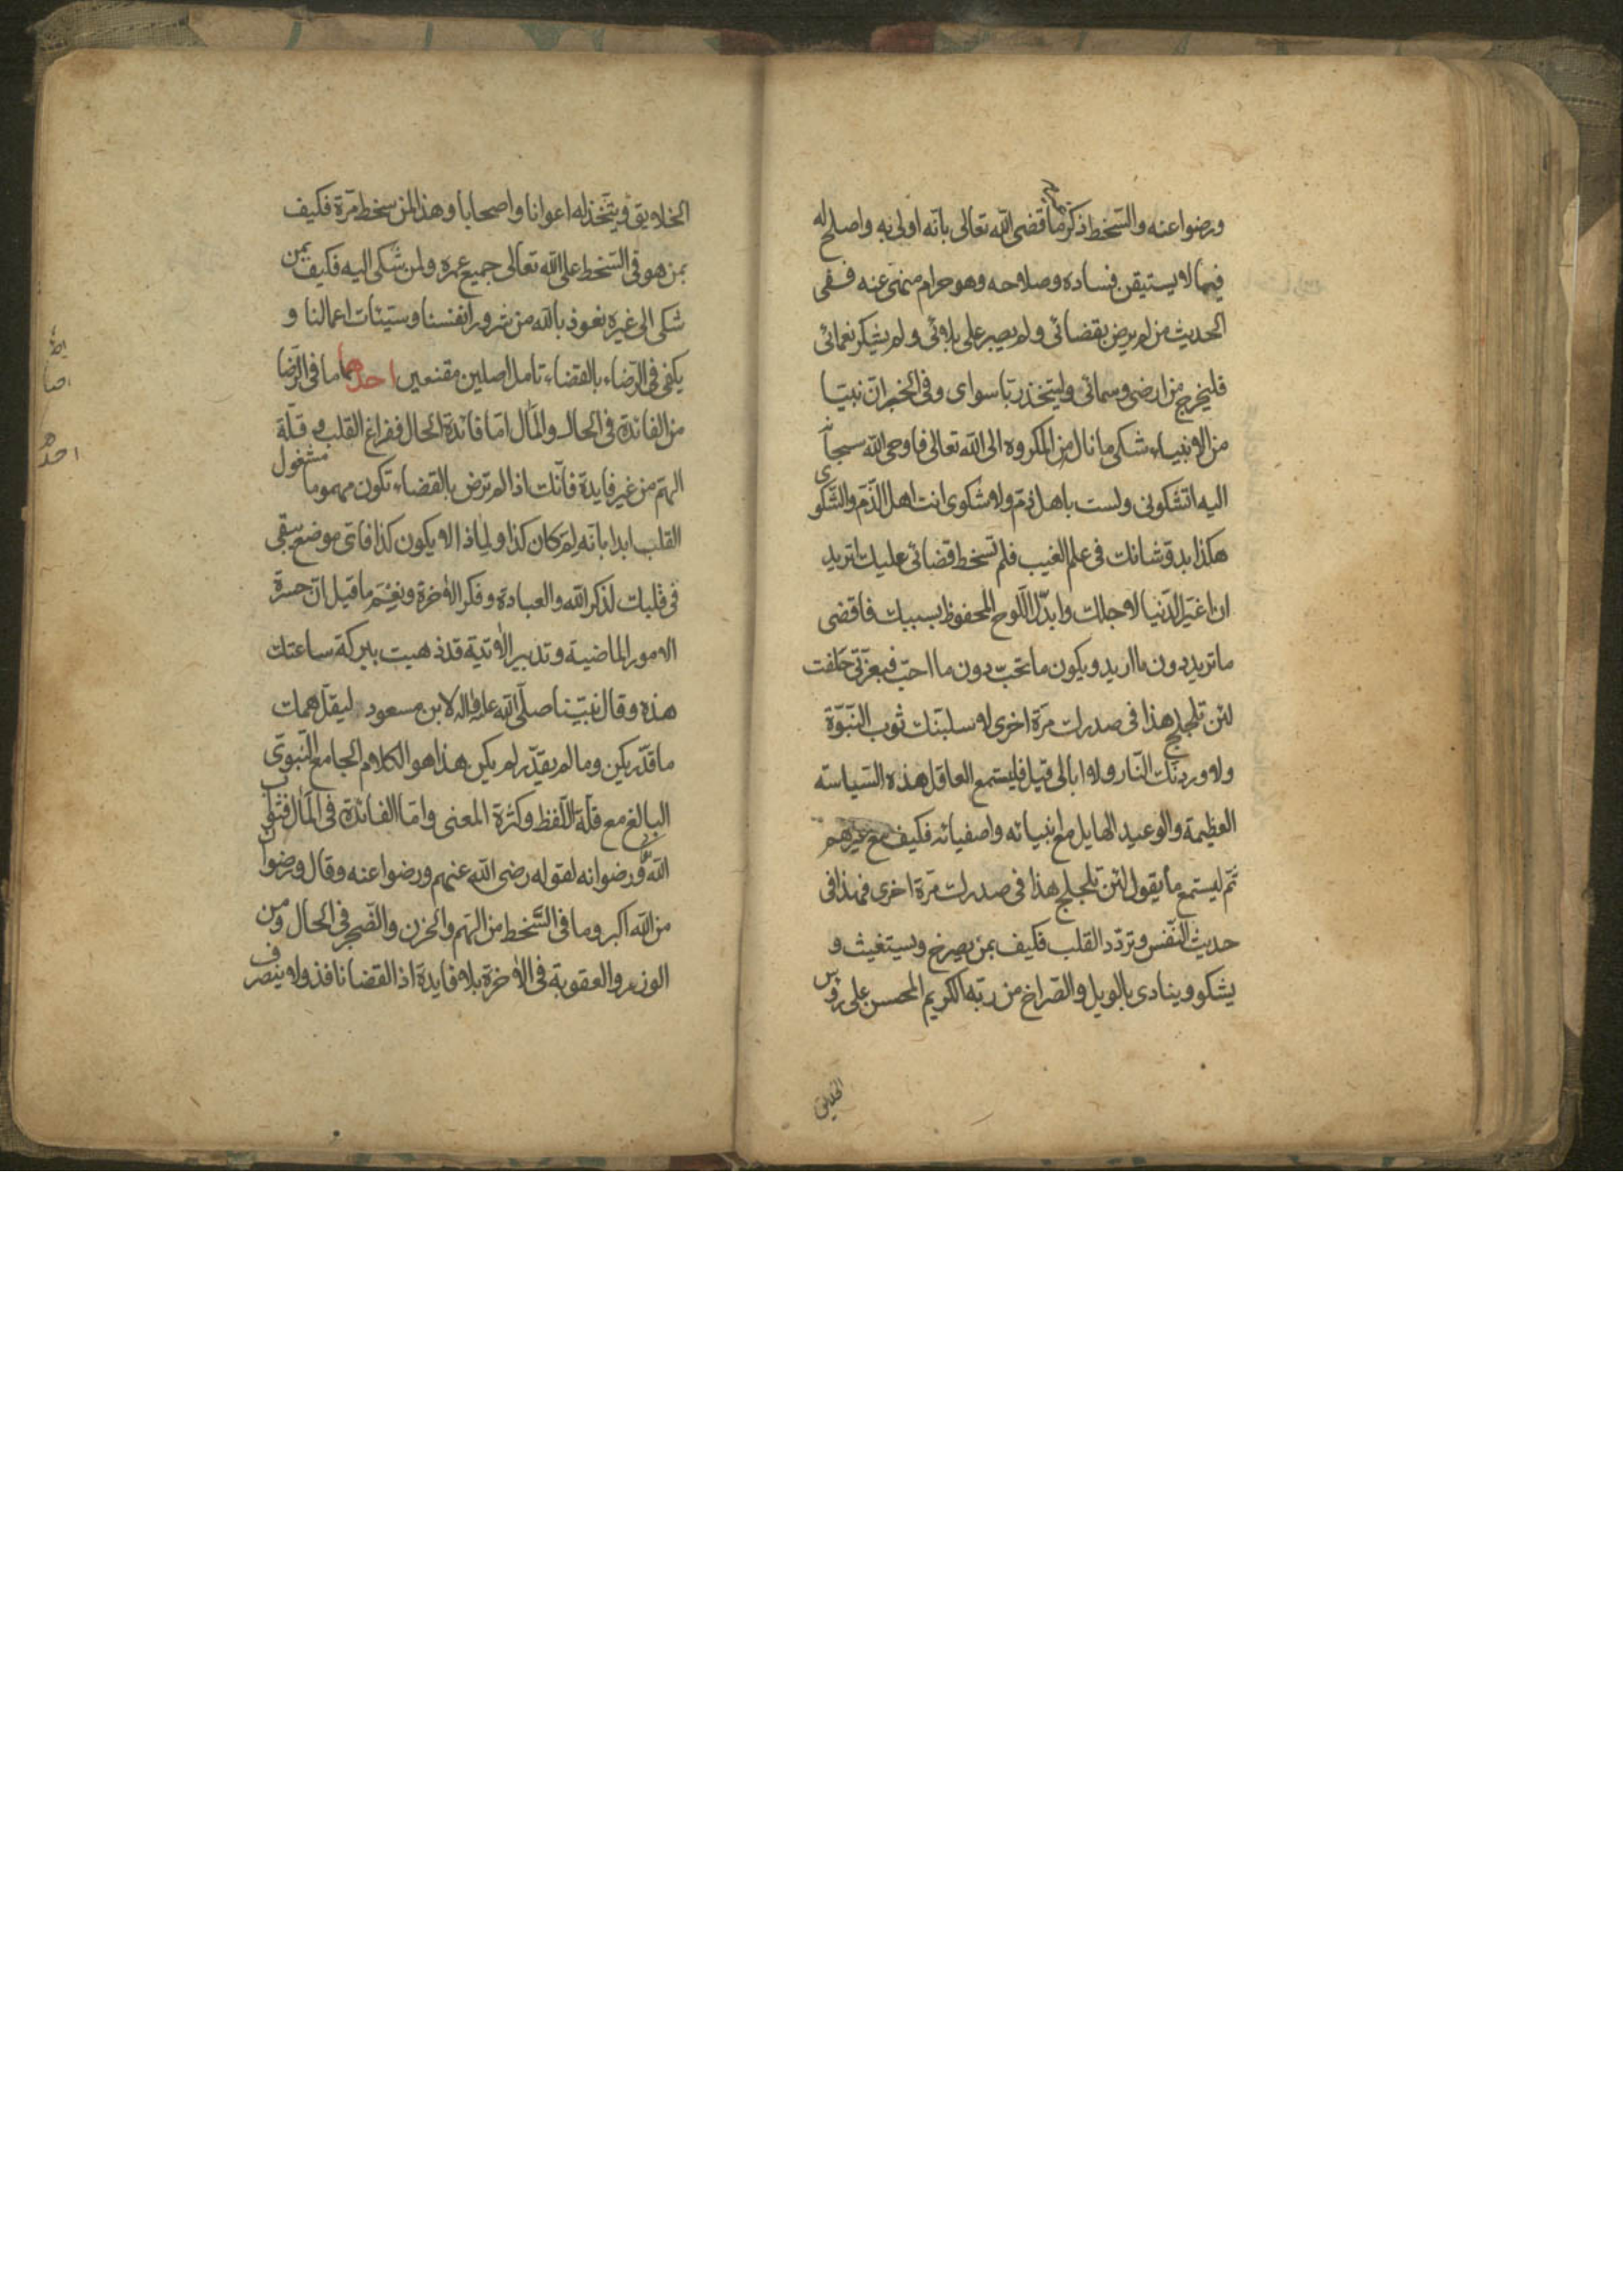 ورضوا عنه والسّخط ذكر ما قضى الله تعالى بانّه اولى به واصلح له
فيما لا يستيقن فساده وصلاحه وهو حرام منهىّ عنه ففى
الحديث من لم يرض بقضائى ولم يصبر على بلائى ولم يشكر نعمائى
فليخرج من ارضى وسمائى وليتّخذ ربّا سواى وفى الخبر انّ نبيّا
من الانبياء شكى ما نال من المكروه الى الله تعالى فاوحى الله سبحانه
اليه اتشكونى ولست باهل ذمّ ولا شكوى انت اهل الذّمّ والشّكوى
هكذا بدو شانك فى علم الغيب فلم تسخط قضائى عليك اتريد
ان اغيّر الدّنيا لاجلك وابدّل اللّوح المحفوظ بسببك فاقضى
ما تريد دون ما اريد ويكون ما تحبّ دون ما احبّ فبعزّتى حلفت
لئن تلجلج هذا فى صدرك مرّة اخرى لاسلبنّك ثوب النّبوّة
ولاوردنّك النّار ولا ابالى قيل فليستمع العاقل هذه السّياسته
العظيمة والوعيد الهايل مع انبيائه واصفيائه فكيف مع غيرهم
ثمّ ليستمع ما يقول لئن تلجلج هذا فى صدرك مرّة اخرى فهذا فى
حديث النّفس وتردّد القلب فكيف بمن يصرخ ويستغيث و
يشكو وينادى بالويل والصّراخ من ربّه الكريم المحسن على رؤس
الخلايق
الخلايق ويتّخذ له اعوانا واصحابا وهذا لمن سخط مرّة فكيف
بمن هو فى السّخط على الله تعالى جميع عمره ولمن شكى اليه فكيف بمن
شكى الى غيره نعوذ بالله من شرور انفسنا وسيّئات اعمالنا و
يكفى فى الرّضاء بالقضاء تامل اصلين مقنعين احدهما ما فى الرّضا
من الفائدة فى الحال والمال امّا فائدة الحال ففراغ القلب و قلّة
الهمّ من غير فايدة فانّك اذا لم ترض بالقضاء تكون مهموما مشغول
القلب ابدا بانّه لم كان كذا ولماذا لا يكون كذا فاىّ موضع يبقى
فى قلبك لذكر الله والعبادة وفكر الاخرة ونعم ما قيل انّ حسرة
الامور الماضية وتدبير الاتية قد ذهبت ببركة ساعتك
هذه وقال نبيّنا صلّى الله عليه واله لابن مسعود ليقلّ همّك
ما قدّر يكن وما لم يقدّر لم يكن هذا هو الكلام الجامع النّبوىّ
البالغ مع قلّة اللّفظ وكثرة المعنى وامّا الفائدة فى المال فثواب
الله ورضوانه لقوله رضى الله عنهم ورضوا عنه وقال ورضوان
من الله اكبر وما فى السّخط من الهمّ والحزن والضّجر فى الحال ومن
الوزر والعقوبة فى الاخرة بلا فايدة اذ القضا نافذ ولا ينصرف